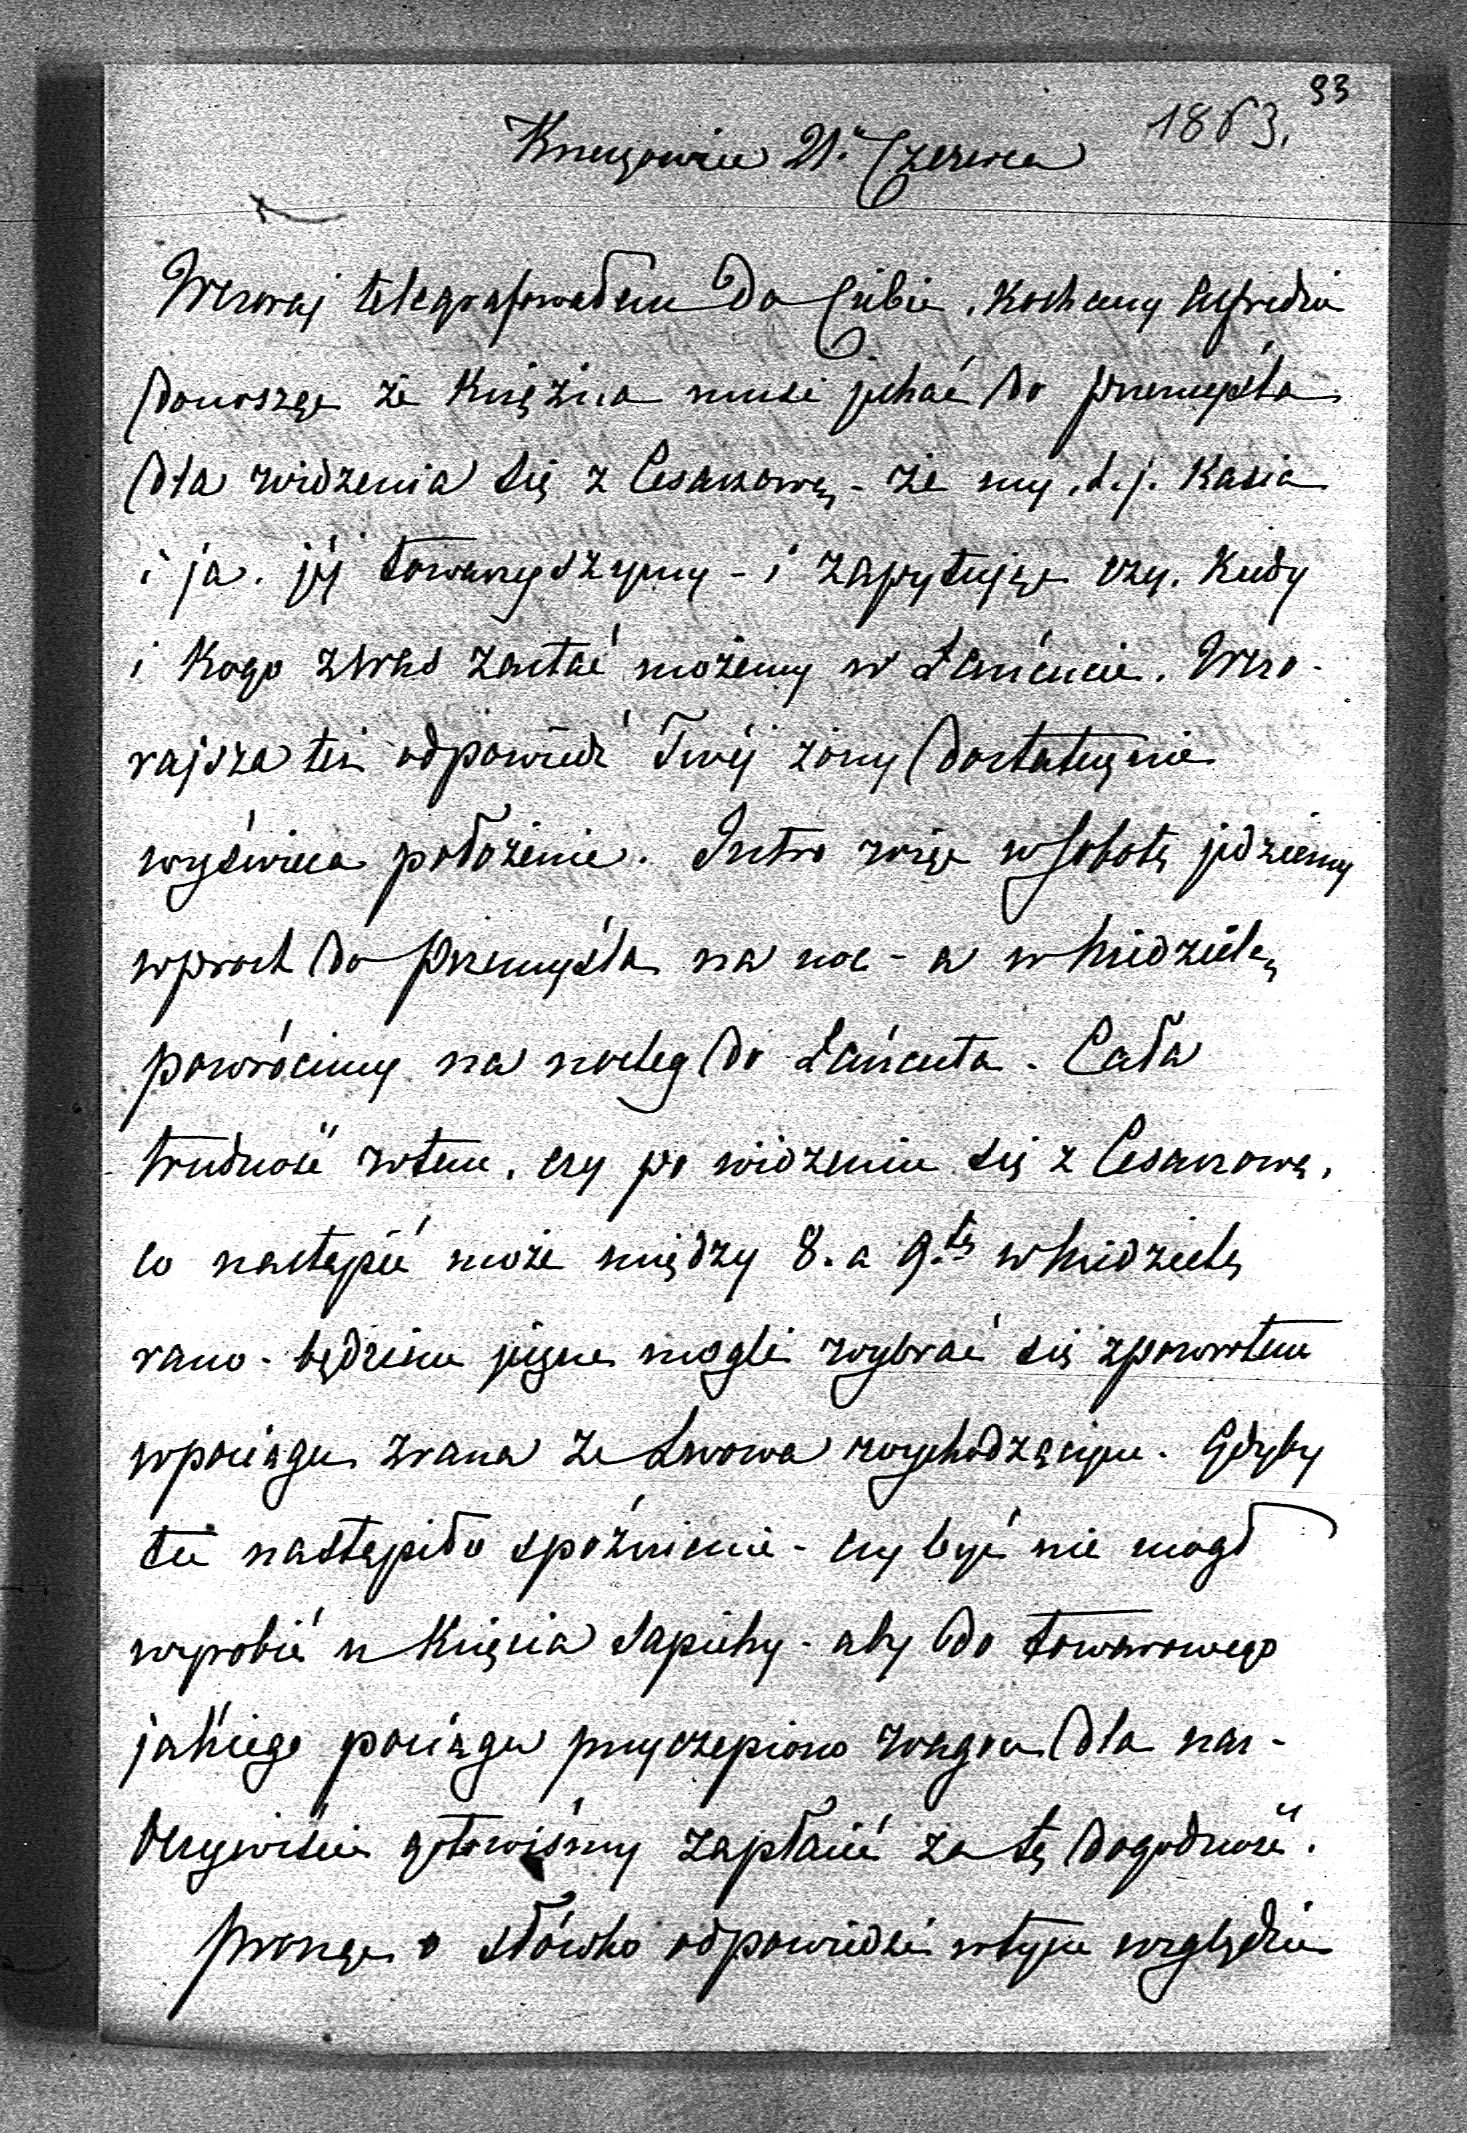 93
1863.
Krzeszowice 21. Czerwca
Wczoraj telegrafowałem do Ciebie, Kochany Alfredzie
donosząc że Księżna musi jechać do Przemyśla
dla widzenia się z Cesarzową - że my, t.j. Kasia
i ja. jéj towarzyszymy - i zapytując czy, kiedy
i kogo z Was zastać możemy w Łańcucie. Wczo-
rajsza też odpowiedź Twéj żony dostatecznie
wyświeca położenie. Jutro więc w Sobotę jedziemy
wprost do Przemyśla na noc - a w Niedzielę
powrócimy na nocleg do Łańcuta. Cała
trudność w tem, czy po widzeniu się z Cesarzową,
co nastąpić może między 8. a 9.tą w Niedzielę
rano - będziem jeszcze mogli wybrać się z powrotem
w pociągu zrana ze Lwowa wychodzącym. Gdyby
tu nastąpiło spóźnienie - czybyś nie mógł
wyrobić u Księcia Sapiehy - aby do towarowego
jakiego pociągu przyczepiono wagon dla nas -
Oczywiście gotowiśmy zapłacić za tę dogodność.
Proszę o słówko odpowiedzi w tym względzie